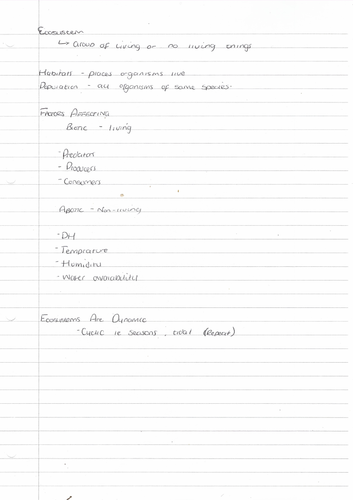 Ecosystem
↳ Group of living or no living things
Habitats - places organisms live
Population - all organisms of same species.
Factors Affecting
Biotic - living
- Predators
- Producers
- Consumers
Abiotic - Non-living
- pH
- Temprature
- Humidity
- Water availability
Ecosystems Are Dynamic
- Cyclic ie seasons, tidal (Repeat)